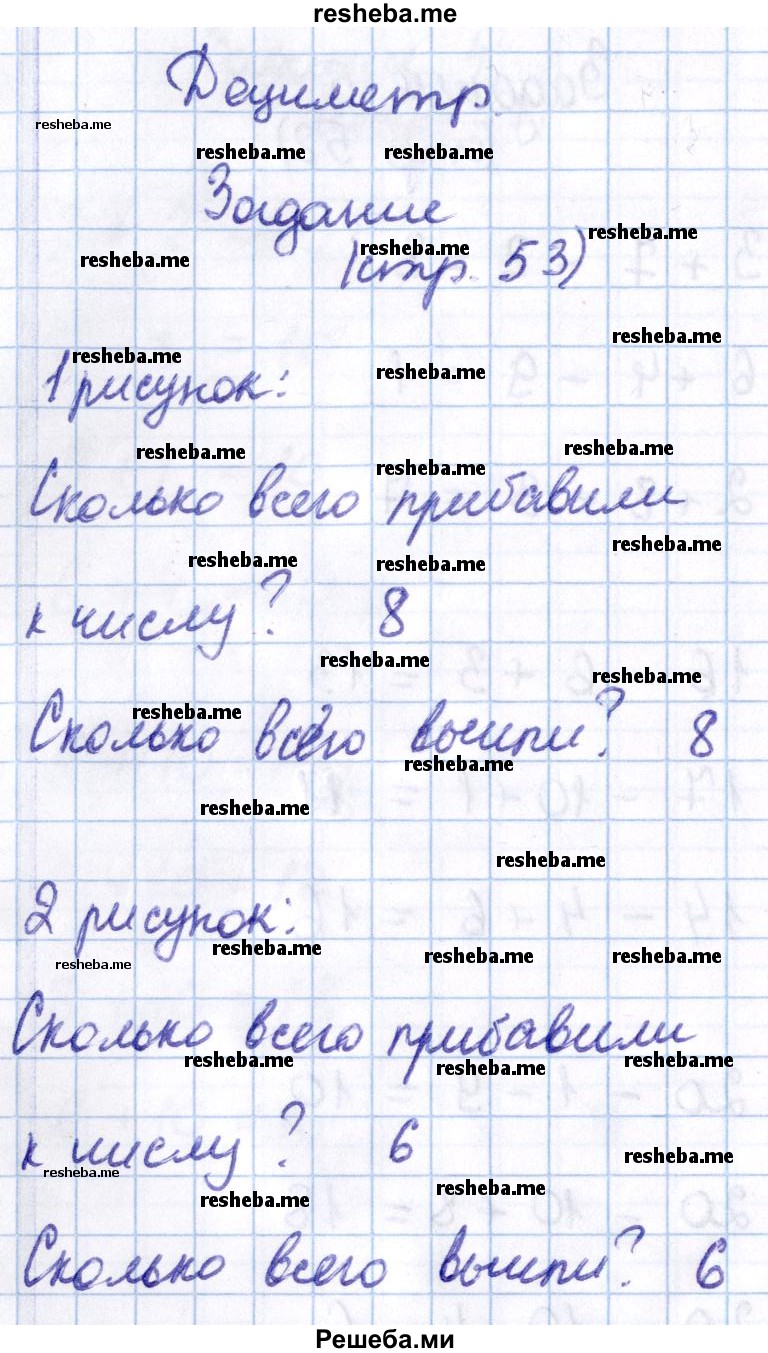 resheba.me
Дециметр.
resheba.me
resheba.me resheba.me
Задание
resheba.me
resheba.me resheba.me
(стр. 53)
resheba.me
resheba.me
resheba.me
1 рисунок:
resheba.me resheba.me
resheba.me
Сколько всего прибавили
resheba.me
resheba.me resheba.me
к числу? 8
resheba.me
resheba.me
resheba.me
Сколько всего вычли? 8
resheba.me
resheba.me
resheba.me
2 рисунок:
resheba.me
resheba.me resheba.me
resheba.me
Сколько всего прибавили
resheba.me resheba.me resheba.me
к числу? 6
resheba.me
resheba.me
resheba.me
resheba.me
Сколько всего вычли? 6
Решеба.ми